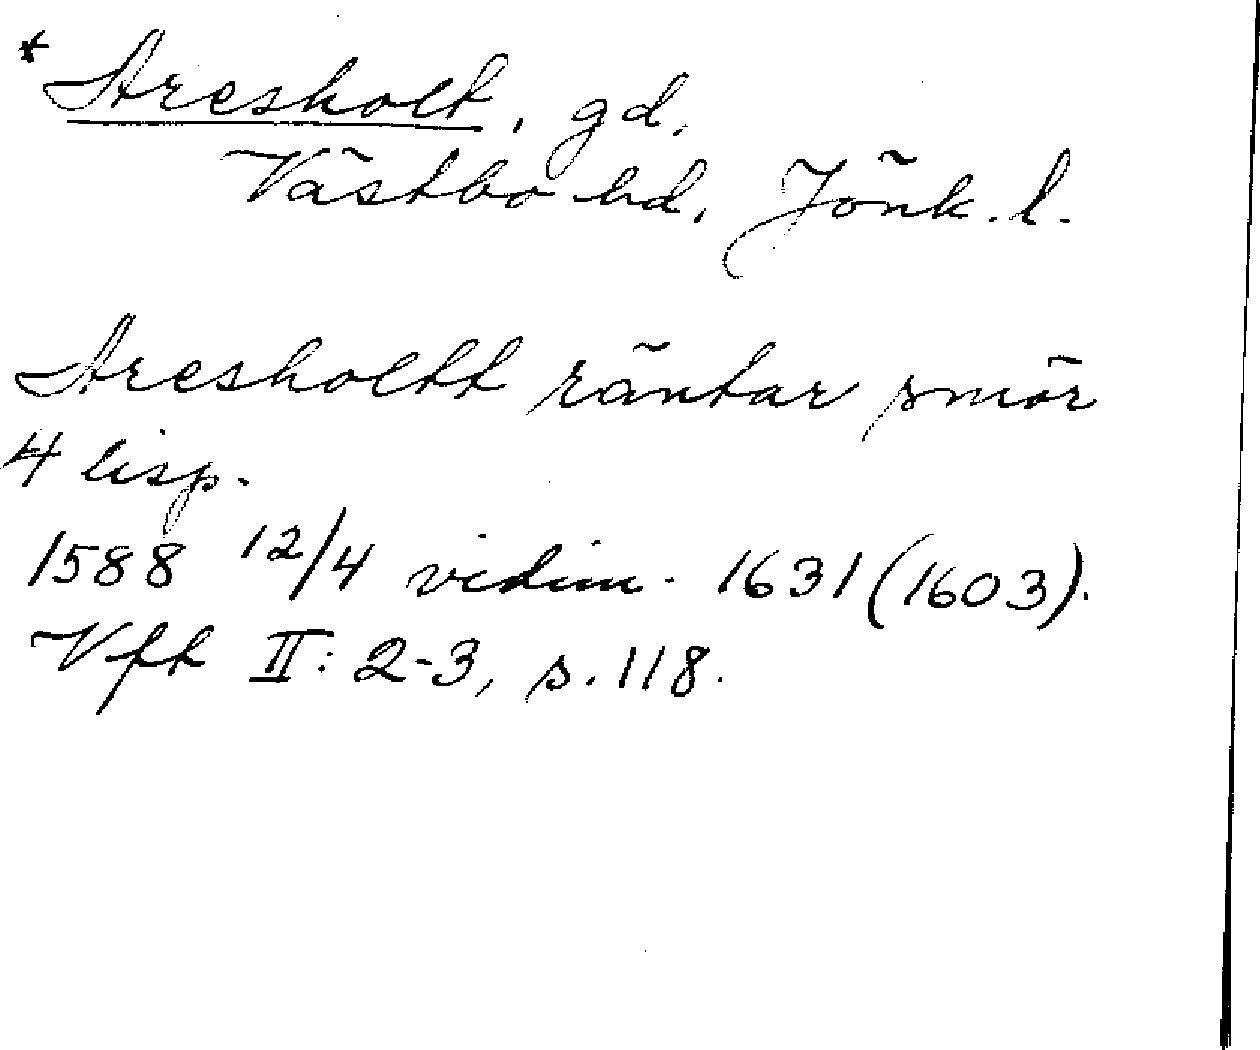 * Aresholt, gd.
Västbo hd, Jönk. l.
Aresholtt räntar smör
4 lisp.
1588 12/4 vidim. 1631 (1603).
Vft II: 2-3, s. 118.